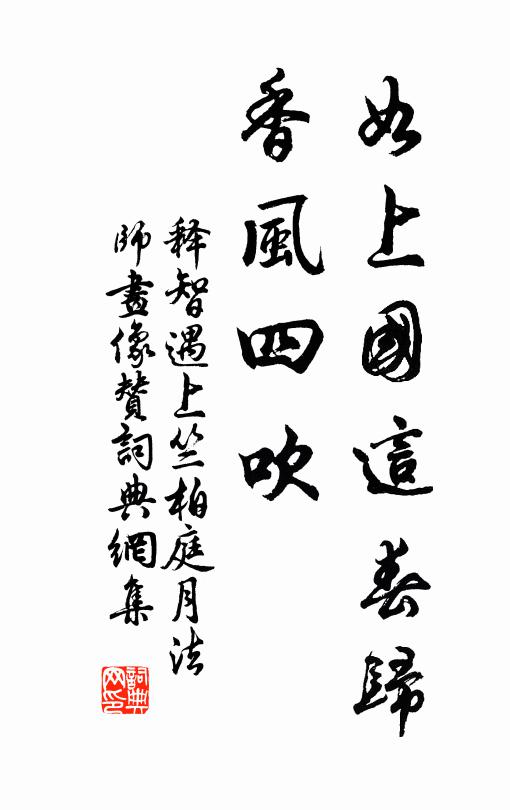 如上國這春歸
香風四吹
释智遇上竺柏庭月法
師畫像赞詞典網集
詞典网印